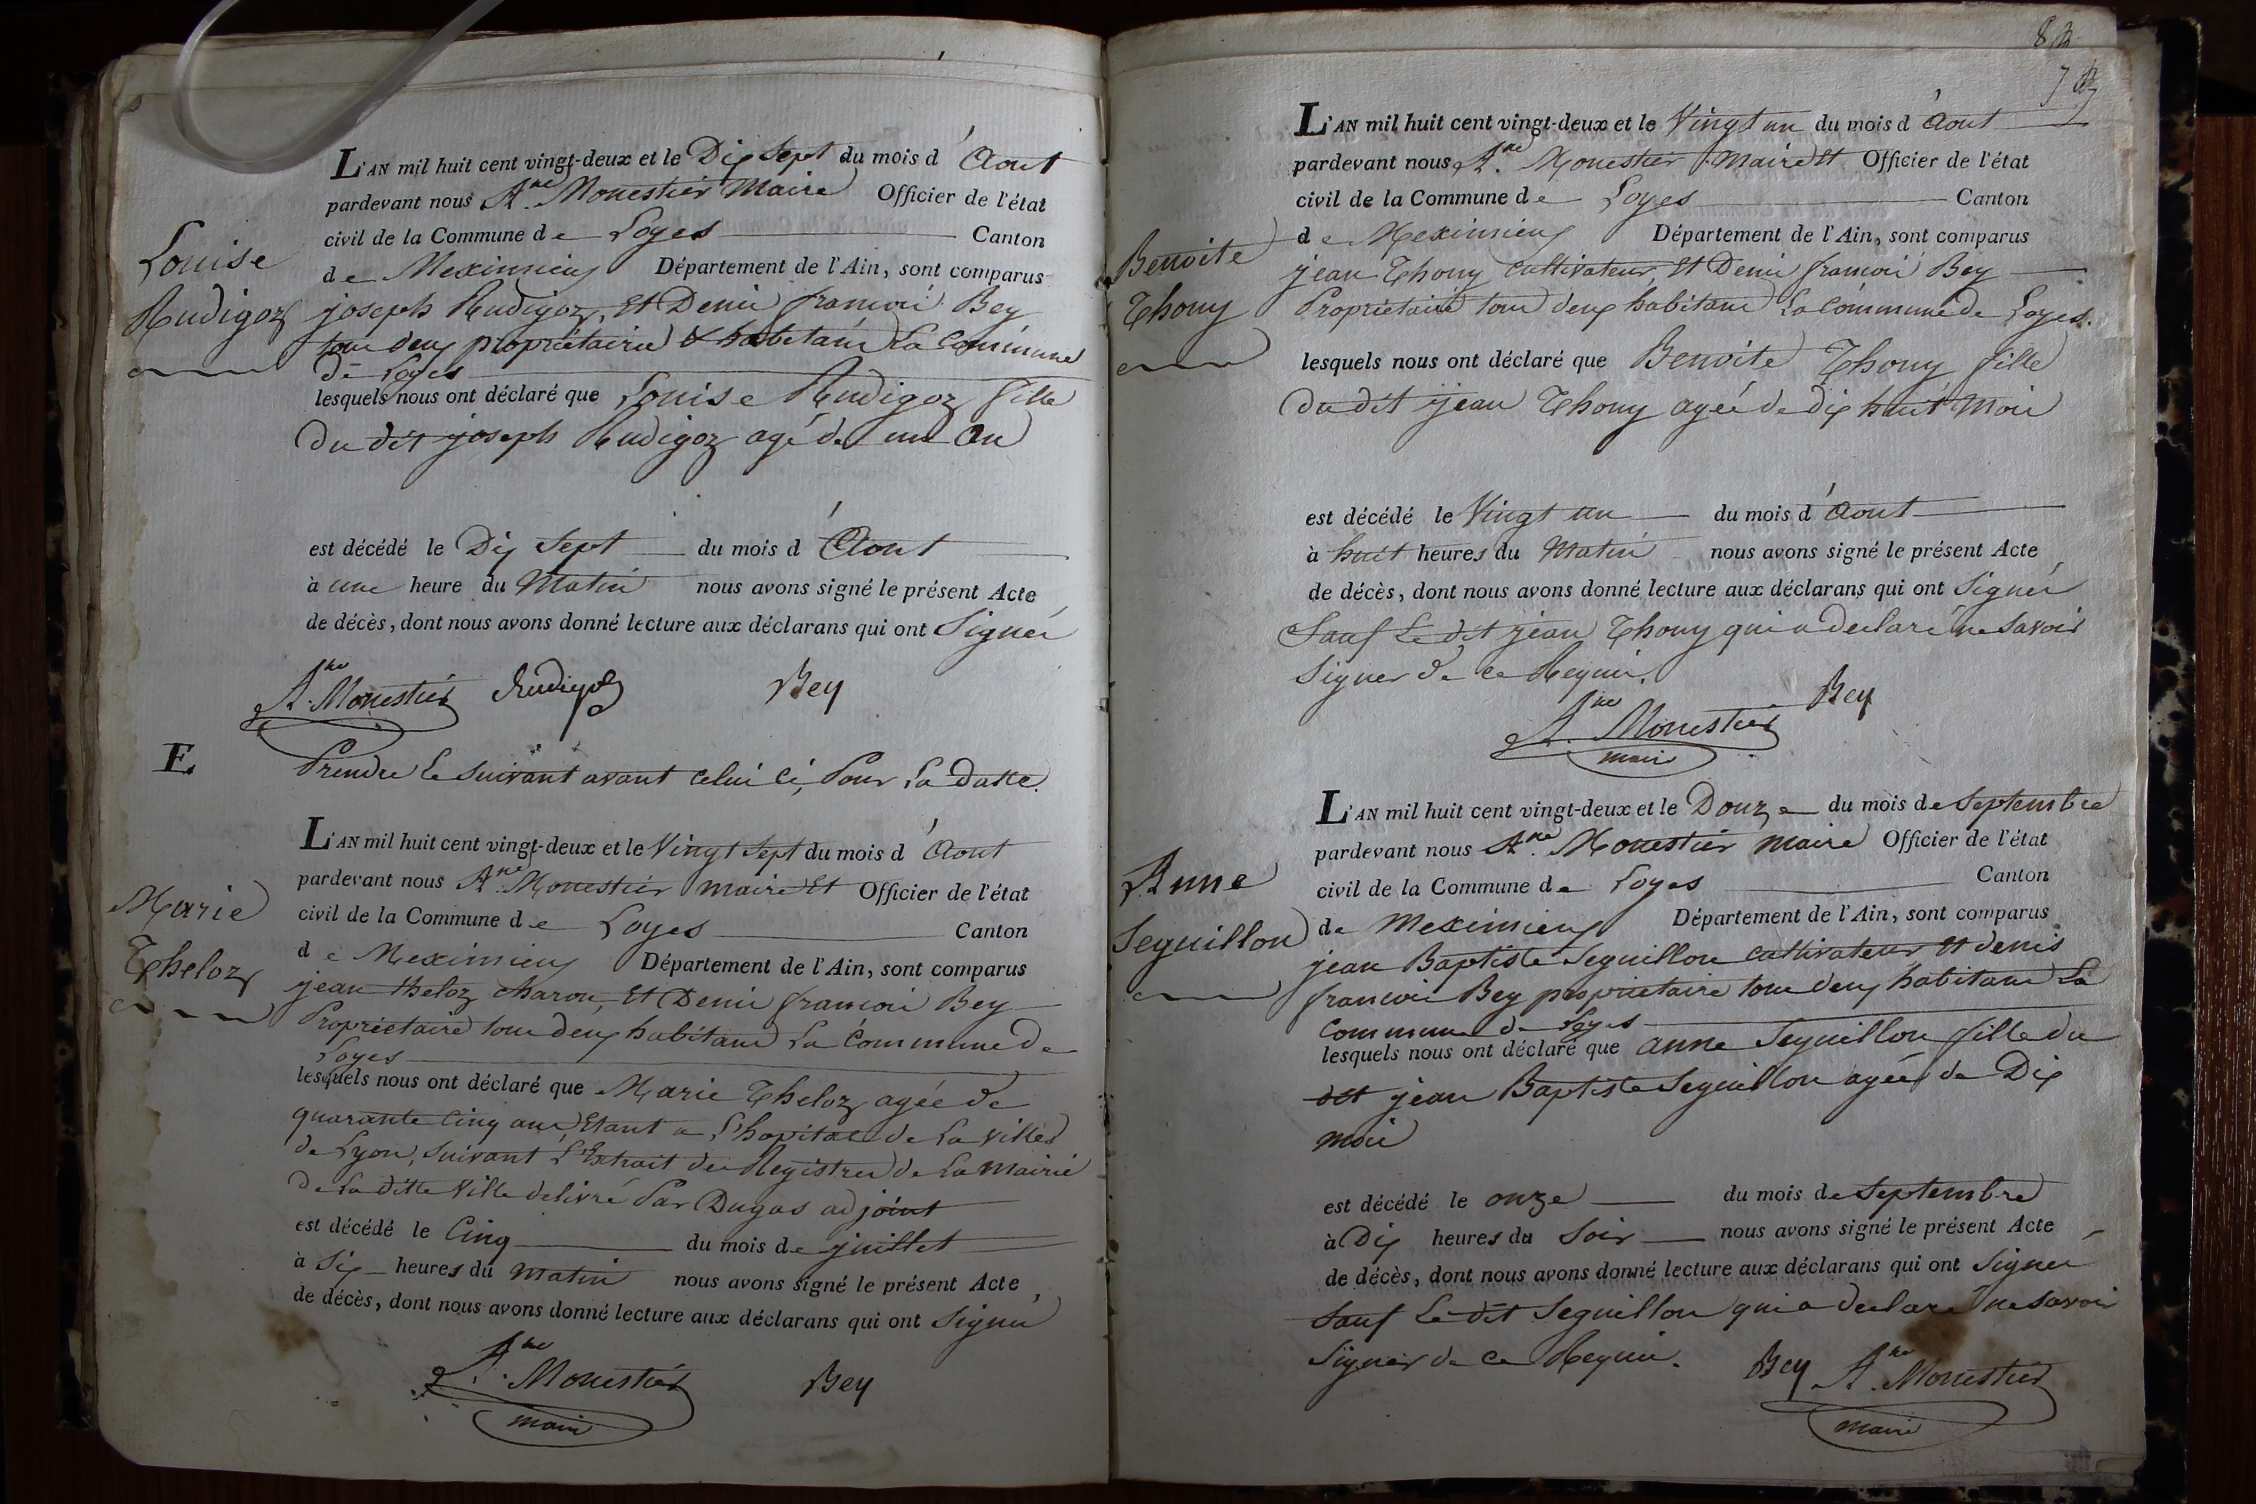 L'AN mil huit cent vingt-deux et le Dix sept du mois d'Aout
pardevant nous A.ne Monestier Maire Officier de l'état
civil de la Commune de Loyes Canton
de Meximieux Département de l'Ain, sont comparus
joseph Rudigoz, et Denis francois Bey
tous deux propriétaires & habitans la Commune
de Loyes
lesquels nous ont déclaré que Louise Rudigoz fille
du dit joseph Rudigoz agé de un an
Louise
Rudigoz
est décédé le Dix sept du mois d'Aout
à une heure du Matin nous avons signé le présent Acte
de décès, dont nous avons donné lecture aux déclarans qui ont Signés
A.ne Monestier Rudigoz Bey
E. Prendre le suivant avant celui ci, Pour la datte.
L'AN mil huit cent vingt-deux et le Vingt sept du mois d'Aout
pardevant nous A.ne Monestier maire et Officier de l'état
civil de la Commune de Loyes Canton
de Meximieux Département de l'Ain, sont comparus
jean theloz charon, et Denis francois Bey
Propriétaire tous deux habitans La Commune de
Loyes
lesquels nous ont déclaré que Marie Theloz agée de
quarante cinq ans Etant a L'hopital de la ville
de Lyon, suivant L'Extrait des Registres de la mairie
de la ditte ville delivré Par Dugas adjoint
Marie
Theloz
est décédé le Cinq du mois de juillet
à Six heures du matin nous avons signé le présent Acte,
de décès, dont nous avons donné lecture aux déclarans qui ont Signés
A.ne Monestier Bey
maire
L'AN mil huit cent vingt-deux et le Vingt un du mois d'Aout
pardevant nous A.ne Monestier Maire et Officier de l'état
civil de la Commune de Loyes Canton
de Meximieux Département de l'Ain, sont comparus
jean Thony cultivateur, et Denis francois Bey
Propriétaire tous deux habitans La Commune de Loyes.
lesquels nous ont déclaré que Benoite Thony fille
du dit jean Thony agée de dix huit Mois
Benoite
Thony
est décédé le Vingt un du mois d'Aout
à huit heures du Matin nous avons signé le présent Acte
de décès, dont nous avons donné lecture aux déclarans qui ont Signés
Sauf Le dit jean Thony qui a declaré ne savoir
signer de ce Requis.
A.ne Monestier Bey
maire
L'AN mil huit cent vingt-deux et le Douze du mois de Septembre
pardevant nous A.ne Monestier maire Officier de l'état
civil de la Commune de Loyes Canton
de Meximieux Département de l'Ain, sont comparus
jean Baptiste Seguillon cultivateur et denis
francois Bey propriétaire tous deux habitans La
Commune de Loyes
lesquels nous ont déclaré que anne Seguillon fille du
dit jean Baptiste Seguillon agée de Dix
mois
Anne
Seguillon
est décédé le onze du mois de Septembre
à Dix heures du Soir nous avons signé le présent Acte
de décès, dont nous avons donné lecture aux déclarans qui ont Signés
Sauf Le dit Seguillon qui a declaré ne savoir
Signer de ce Requis.
Bey A.ne Monestier
maire